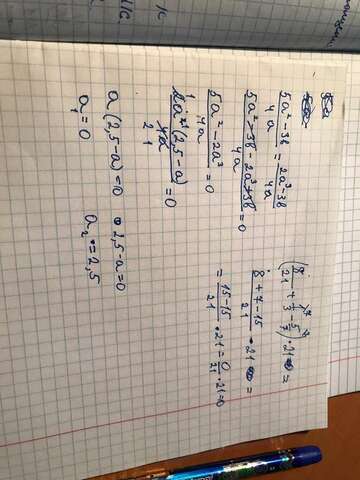 (5a² - 3b)/4a = (2a³ - 3b)/4a
(5a² - 3b - 2a³ + 3b)/4a = 0
(5a² - 2a³)/4a = 0
2a²(2,5 - a)/4a = 0
a(2,5 - a) = 0 2,5 - a = 0
a₁ = 0 a₂ = 2,5
(8/21 + 1/3 - 5/7) · 21 =
(8 + 7 - 15)/21 · 21 =
= (15 - 15)/21 · 21 = 0/21 · 21 = 0